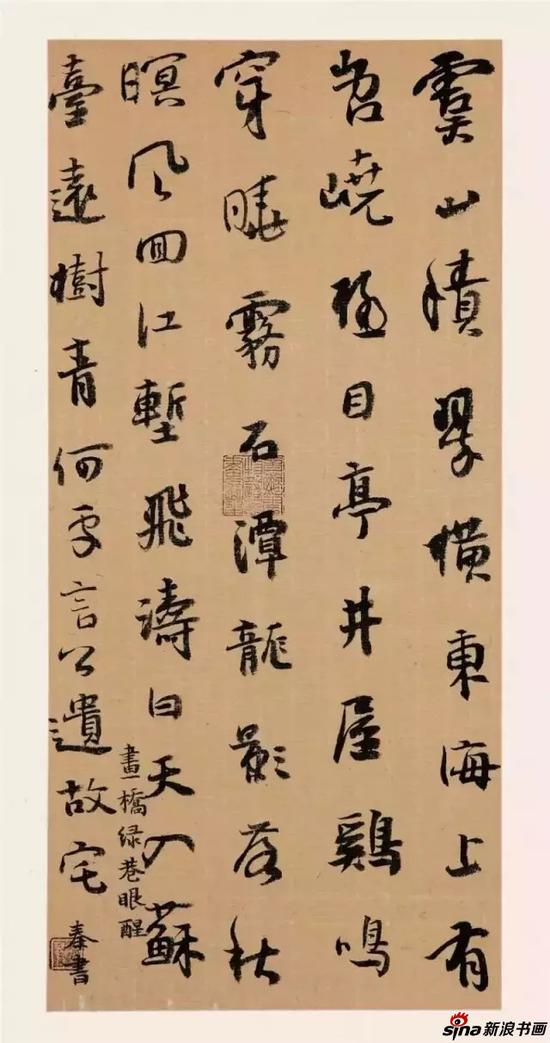 虞山積翠橫東海上有
岧嶢極目亭井屋鷄鳴
穿曉霧石潭龍影落秋
暝風回江塹飛濤白天入蘇
臺遠樹青何處言公遺故宅
畫橋綠巷眼醒
奉書
sina 新浪书画